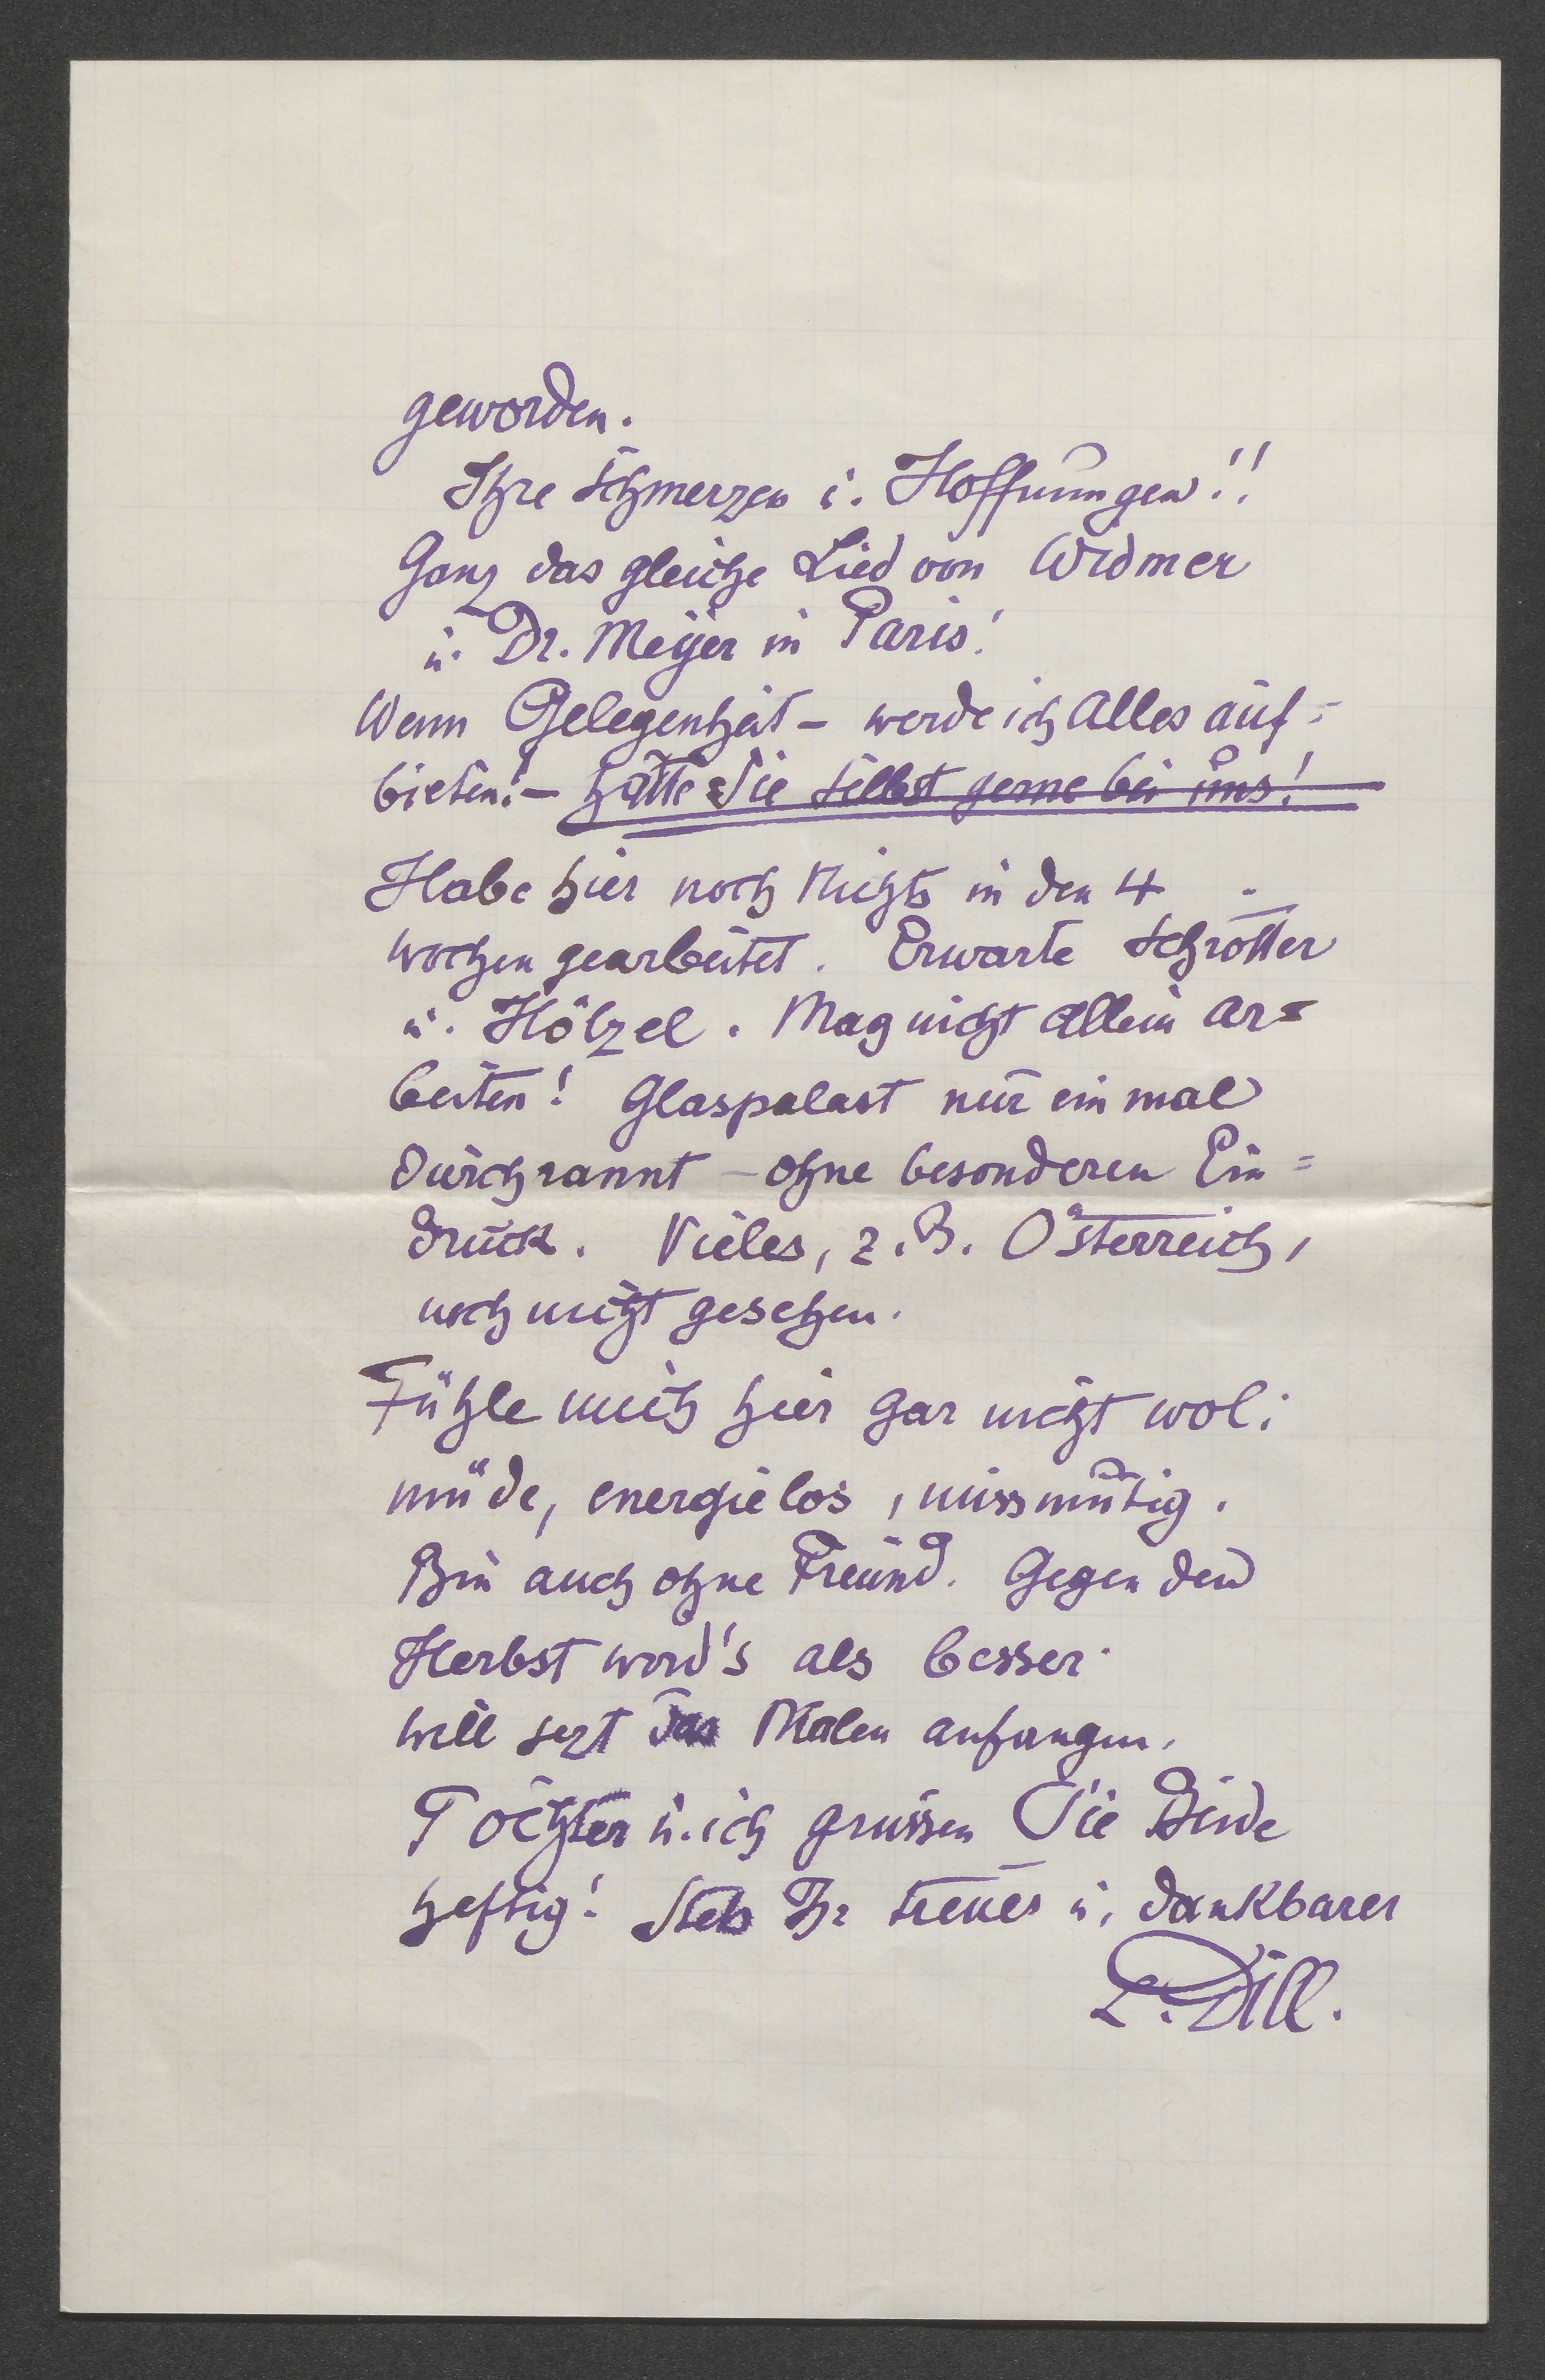 geworden.
Ihre Schmerzen u. Hoffnungen!!
Ganz das gleiche Lied von Widmer
u. Dr. Meyer in Paris!
Wenn Gelegenheit – werde ich Alles auf=
bieten! – hätte Sie selbst gerne bei uns!
Habe hier noch Nichts in den 4
wochen gearbeitet. Erwarte Schrötter
u. Hölzel. Mag nicht allein ar=
beiten! Glaspalast nur ein mal
durchrannt – ohne besonderen Ein=
druck. Vieles, z. B. Österreich,
noch nicht gesehen.
Fühle mich hier gar nicht wol:
müde, energielos, missmutig.
Bin auch ohne Freund. Gegen den
Herbst word's als besser.
Will jezt das Malen anfangen.
Töchter u. ich grüssen Sie Beide
heftig! Stets Ihr treuer u. dankbarer
L. Dill.